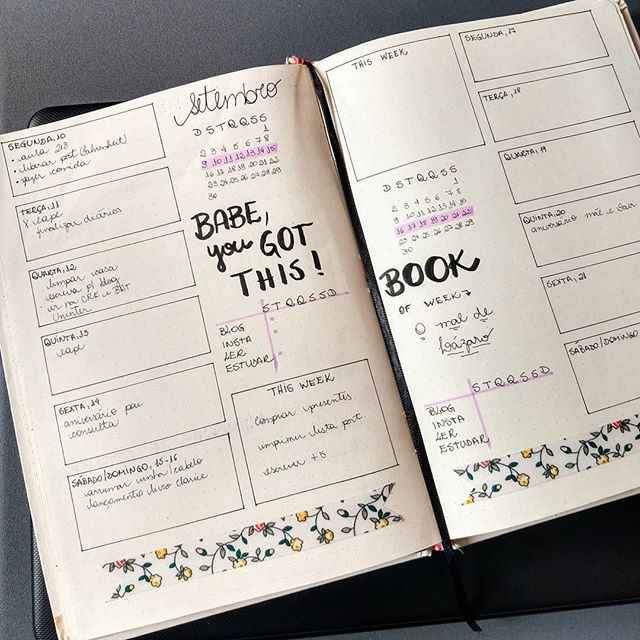 SEGUNDA, 10
• aula 213
• liberar post (fahrenheit)
• fazer comida
TERÇA, 11
X cape
finalizar diários
QUARTA, 12
limpar casa
escreva p/ blog
ir na CRE e
Uninter
QUINTA, 13
cape
SEXTA, 14
aniversário pai
consulta
SÁBADO/DOMINGO, 15-16
arrumar unha/cabelo
lançamento livro clarice
Setembro
D S T Q Q S S
1
2 3 4 5 6 7 8
9 10 11 12 13 14 15
16 17 18 19 20 21 22
23 24 25 26 27 28 29
30
BABE,
you GOT
THIS!
S T Q Q S S D
BLOG
INSTA
LER
ESTUDAR
THIS WEEK
comprar presentes
imprimir lista port.
escrever +5
THIS WEEK
D S T Q Q S S
1
2 3 4 5 6 7 8
9 10 11 12 13 14 15
16 17 18 19 20 21 22
23 24 25 26 27 28 29
30
BOOK
OF WEEK
O mal de
Lázaro
S T Q Q S S D
BLOG
INSTA
LER
ESTUDAR
SEGUNDA, 17
TERÇA, 18
QUARTA, 19
QUINTA, 20
aniversário mãe e
SEXTA, 21
SÁBADO/DOMINGO